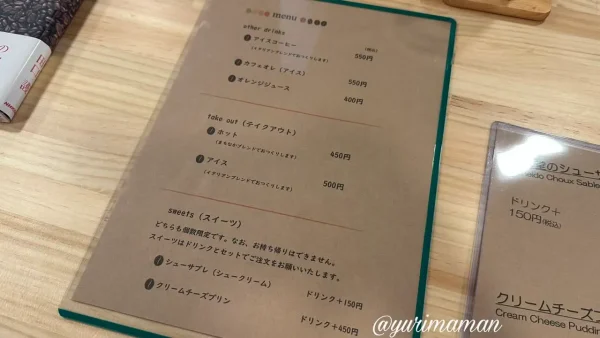 menu
other drinks
(税込)
アイスコーヒー 550円
(イタリアンブレンドでおつくりします)
カフェオレ (アイス) 550円
オレンジジュース 400円
take out (テイクアウト)
ホット 450円
(まろやかブレンドでおつくりします)
アイス 500円
(イタリアンブレンドでおつくりします)
sweets (スイーツ)
どちらも個数限定です。なお、お持ち帰りはできません。
スイーツはドリンクとセットでご注文をお願いいたします。
シューサブレ (シュークリーム) ドリンク+150円
クリームチーズプリン ドリンク+450円
のシューサ
Choux Sable
ドリンク+
150円(税込)
クリームチーズ
Cream Cheese Puddin
@yurimaman